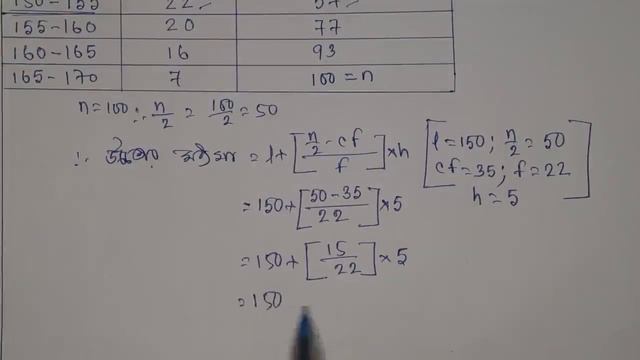 150-155 22 57
155-160 20 77
160-165 16 93
165-170 7 100=n
n=100 ∴ n/2 = 100/2 = 50
∴ মধ্যমা = l+[(n/2 - cf)/f]×h [l=150; n/2=50
cf=35; f=22
h=5]
=150+[(50-35)/22]×5
=150+[15/22]×5
=150